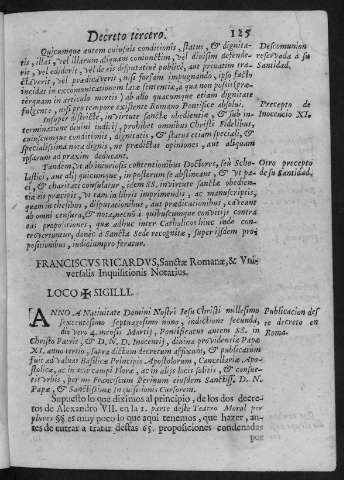 Decreto tercero. 125
Quicumque autem cuiusuis conditionis, status, & dignita-
tis, illas, vel illarum aliquam coniunctim, vel diuisim defende-
rit, vel ediderit, vel de eis disputatiuè publicè, aut priuatim tra-
ctauerit, vel prædicauerit, nisi forsam impugnando, ipso facto
incidat in excommunicationem latæ sententiæ, a qua non possit (præ-
terquam in articulo mortis) ab alio quacumque etiam dignitate
fulgente, nisi pro tempore existente Romano Pontifice absolui.
Descomunion
reservada a su
Santidad.
Insuper districtè, in virtute sanctæ obedientiæ, & sub in-
terminatione diuini iudicij, prohibet omnibus Christi Fidelibus,
cuiuscumque conditionis, dignitatis, & status etiam speciali, &
specialissima nota dignis, ne prædictas opiniones, aut aliquam
ipsarum ad praxim deducant.
Precepto de
Inocencio XI.
Tandem, vt ab iniuriosis contentionibus Doctores, seù Scho-
lastici, aut alij quicumque, in posterum se abstineant, & vt pa-
ci, & charitati consulatur, idem SS. in virtute sanctæ obedien-
tiæ eis præcipit, vt tam in libris imprimendis, ac manuscriptis,
quam in thesibus, disputationibus, aut prædicationibus, caueant
ab omni censura, & nota, necnon à quibuscumque conuitijs contra
eas propositiones, quæ adhuc inter Catholicos hinc inde con-
trovertuntur, donec à Sancta Sede recognitæ, super ijsdem pro-
positionibus, iudicium proferatur.
Otro precepto
de su Santidad.
FRANCISCVS RICARDVS, Sanctæ Romanæ, & Vni-
versalis Inquisitionis Notarius.
LOCO ✠ SIGILLI.
ANNO A Natiuitate Domini Nostri Iesu Christi millesimo
sexcentesimo septuagesimo nono, indictione secunda,
die vero 4. mensis Martij, Pontificatus autem SS. in
Christo Patris, & D. N. D. Inocentij, diuina prouidentia Papæ
XI. anno tertio, supra dictum decretum affixum, & publicatum
fuit ad valuas Basilicæ Principis Apostolorum, Cancellariæ Apo-
stolicæ, ac in acie campi Floræ, ac in alijs locis solitis, & consue-
tis vrbis, per me Franciscum Perinum eiusdem Sanctiss. D. N.
Papæ, & Sanctissimæ Inquisitionis Cursorem.
Publicacion des
te decreto en
Roma.
Supuesto lo que diximos al principio, de los dos decre-
tos de Alexandro VII. en la 1. parte deste Teatro Moral per
plures §§ es muy poco lo que aqui tenemos, que hazer, an-
tes de entrar a tratar destas 65. proposiciones condenadas
por